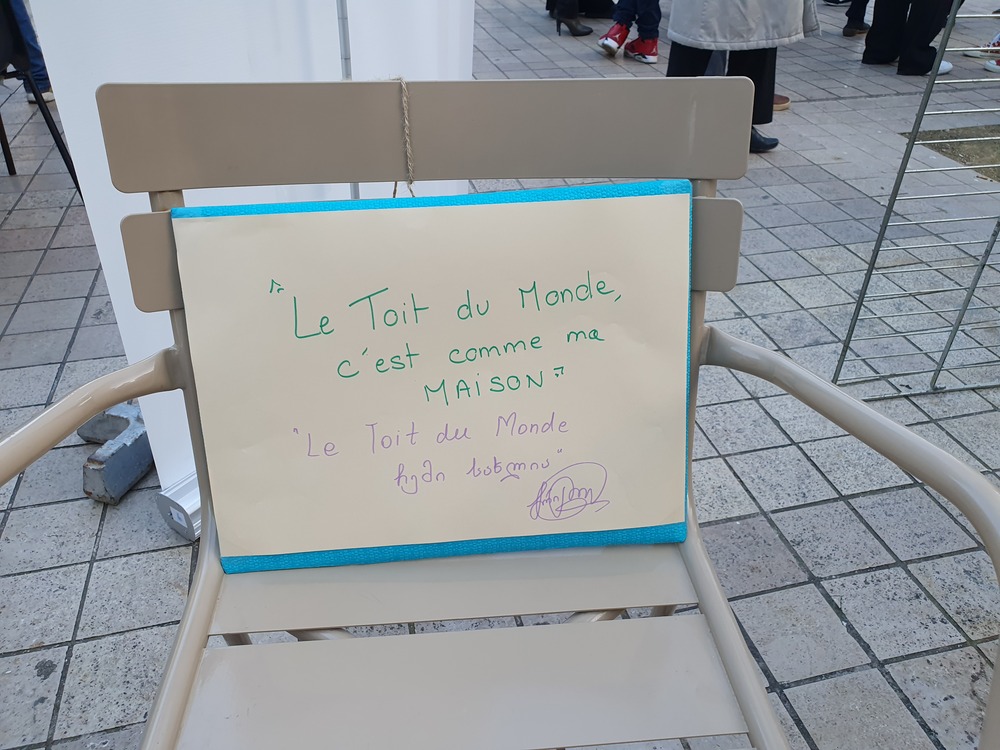 "Le Toit du Monde,
c'est comme ma
MAISON"
"Le Toit du Monde
ჩემი სახლია"